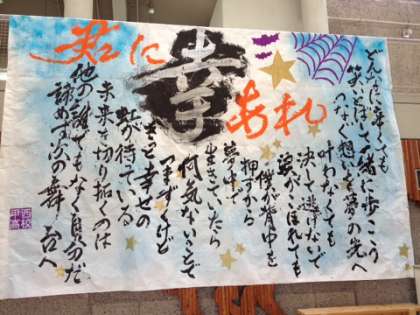 君に幸あれ
どんなに遠くても
笑いとばして一緒に歩こう
つなぐ想いを夢の先へ
叶わなくても
決して逃げないで
涙がこぼれても
僕が背中を
押すから
夢中で
生きていたら
何気ないことで
つまずくけど
きっと幸せの
虹が待ている
未来を切り拓くのは
他の誰でもなく自分だ
諦めず次の舞台へ
甲西高校